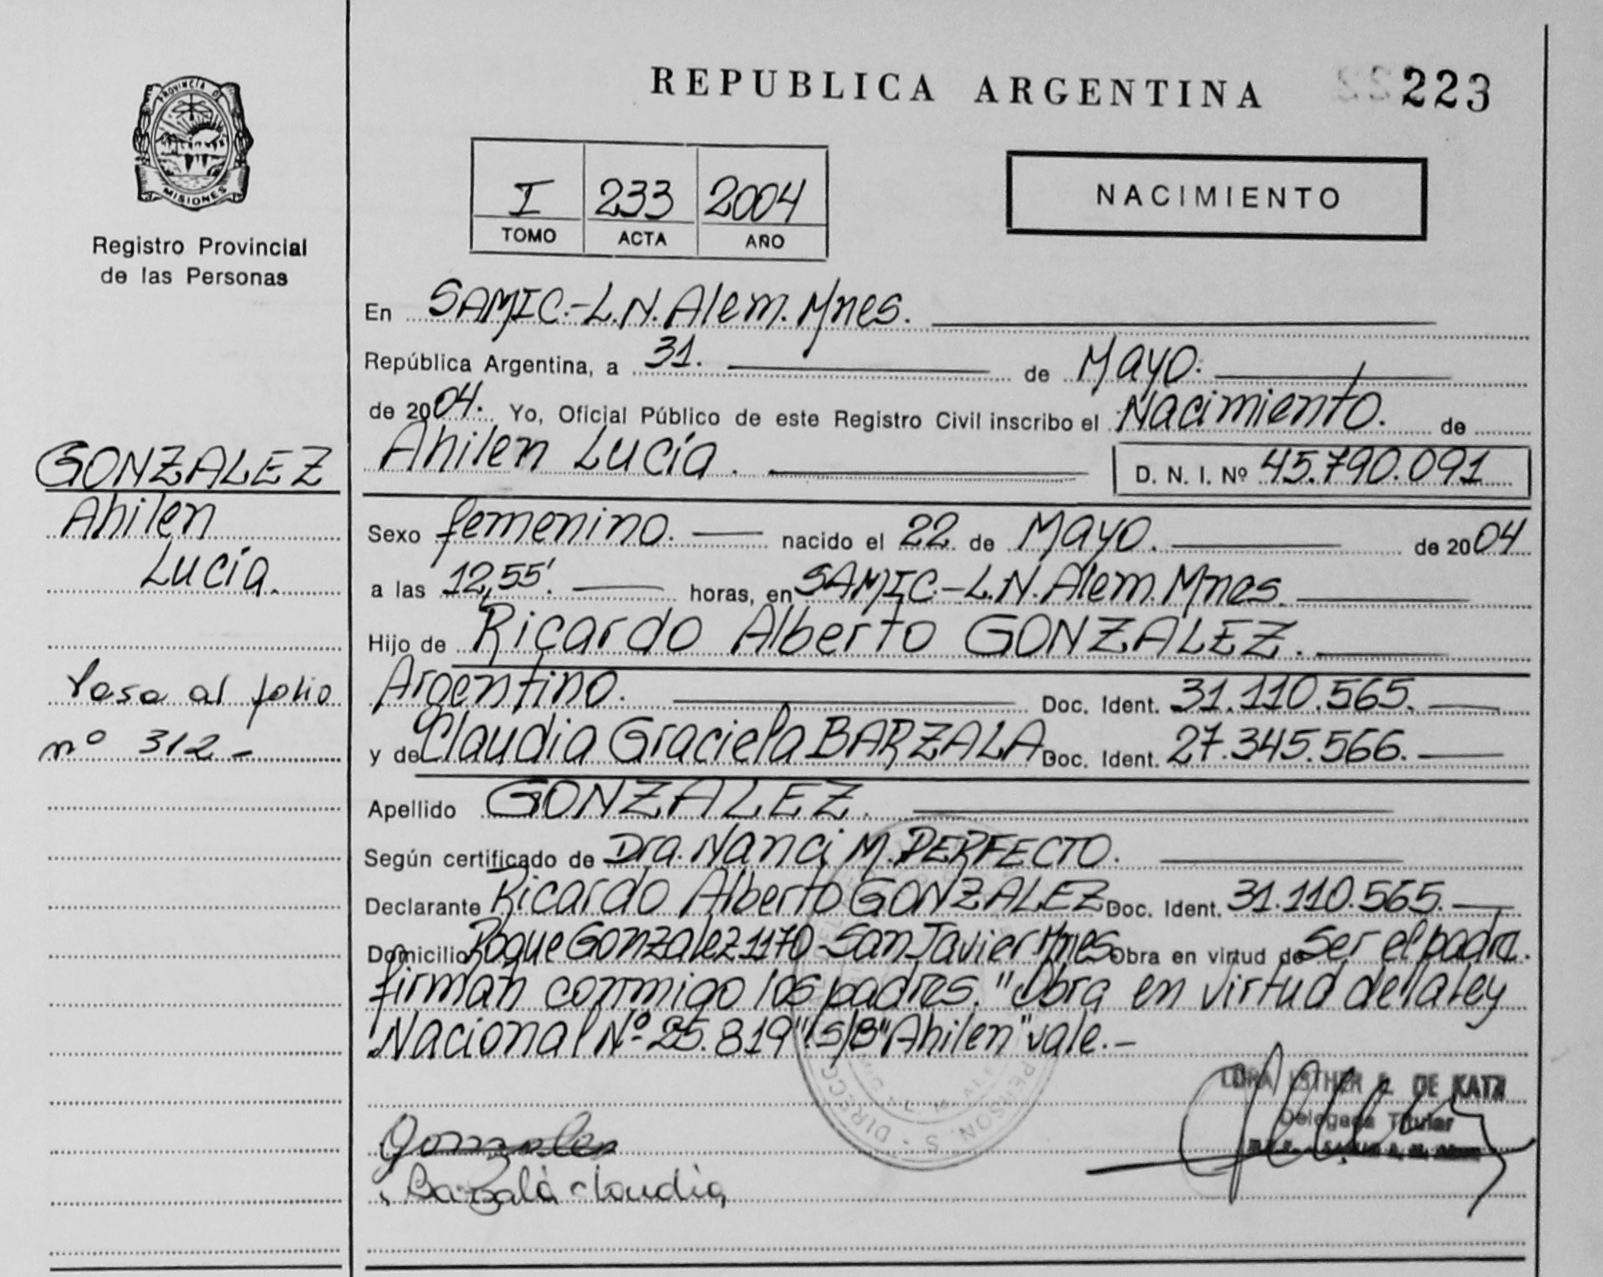 PROVINCIA D
MISIONES
Registro Provincial
de las Personas
REPUBLICA ARGENTINA
223
I 233 2004
TOMO ACTA AÑO
NACIMIENTO
En SAMIC.-L.N.Alem.Mnes.
República Argentina, a 31. de Mayo.
de 2004. Yo, Oficial Público de este Registro Civil inscribo el Nacimiento. de
Ahilen Lucía. D. N. I. Nº 45.790.091
GONZALEZ
Ahilen
Lucía.
Sexo femenino. nacido el 22 de Mayo. de 2004
a las 12,55'. horas, en SAMIC-L.N.Alem.Mnes.
Hijo de Ricardo Alberto GONZALEZ.
Argentino. Doc. Ident. 31.110.565.
y de Claudia Graciela BARZALA Doc. Ident. 27.345.566.
Pasa al folio
nº 312-
Apellido GONZALEZ.
Según certificado de Dra. Nanci M. PERFECTO.
Declarante Ricardo Alberto GONZALEZ Doc. Ident. 31.110.565.
Domicilio Roque Gonzalez 1170-San Javier Mnes. Obra en virtud de Ser el padre.
firman conmigo los padres. "Obra en virtud de la Ley
Nacional Nº 25.819" S/B "Ahilen" vale.-
Gonzalez
Barzala Claudia
ESTHER DE KATZ
Delegada Titular